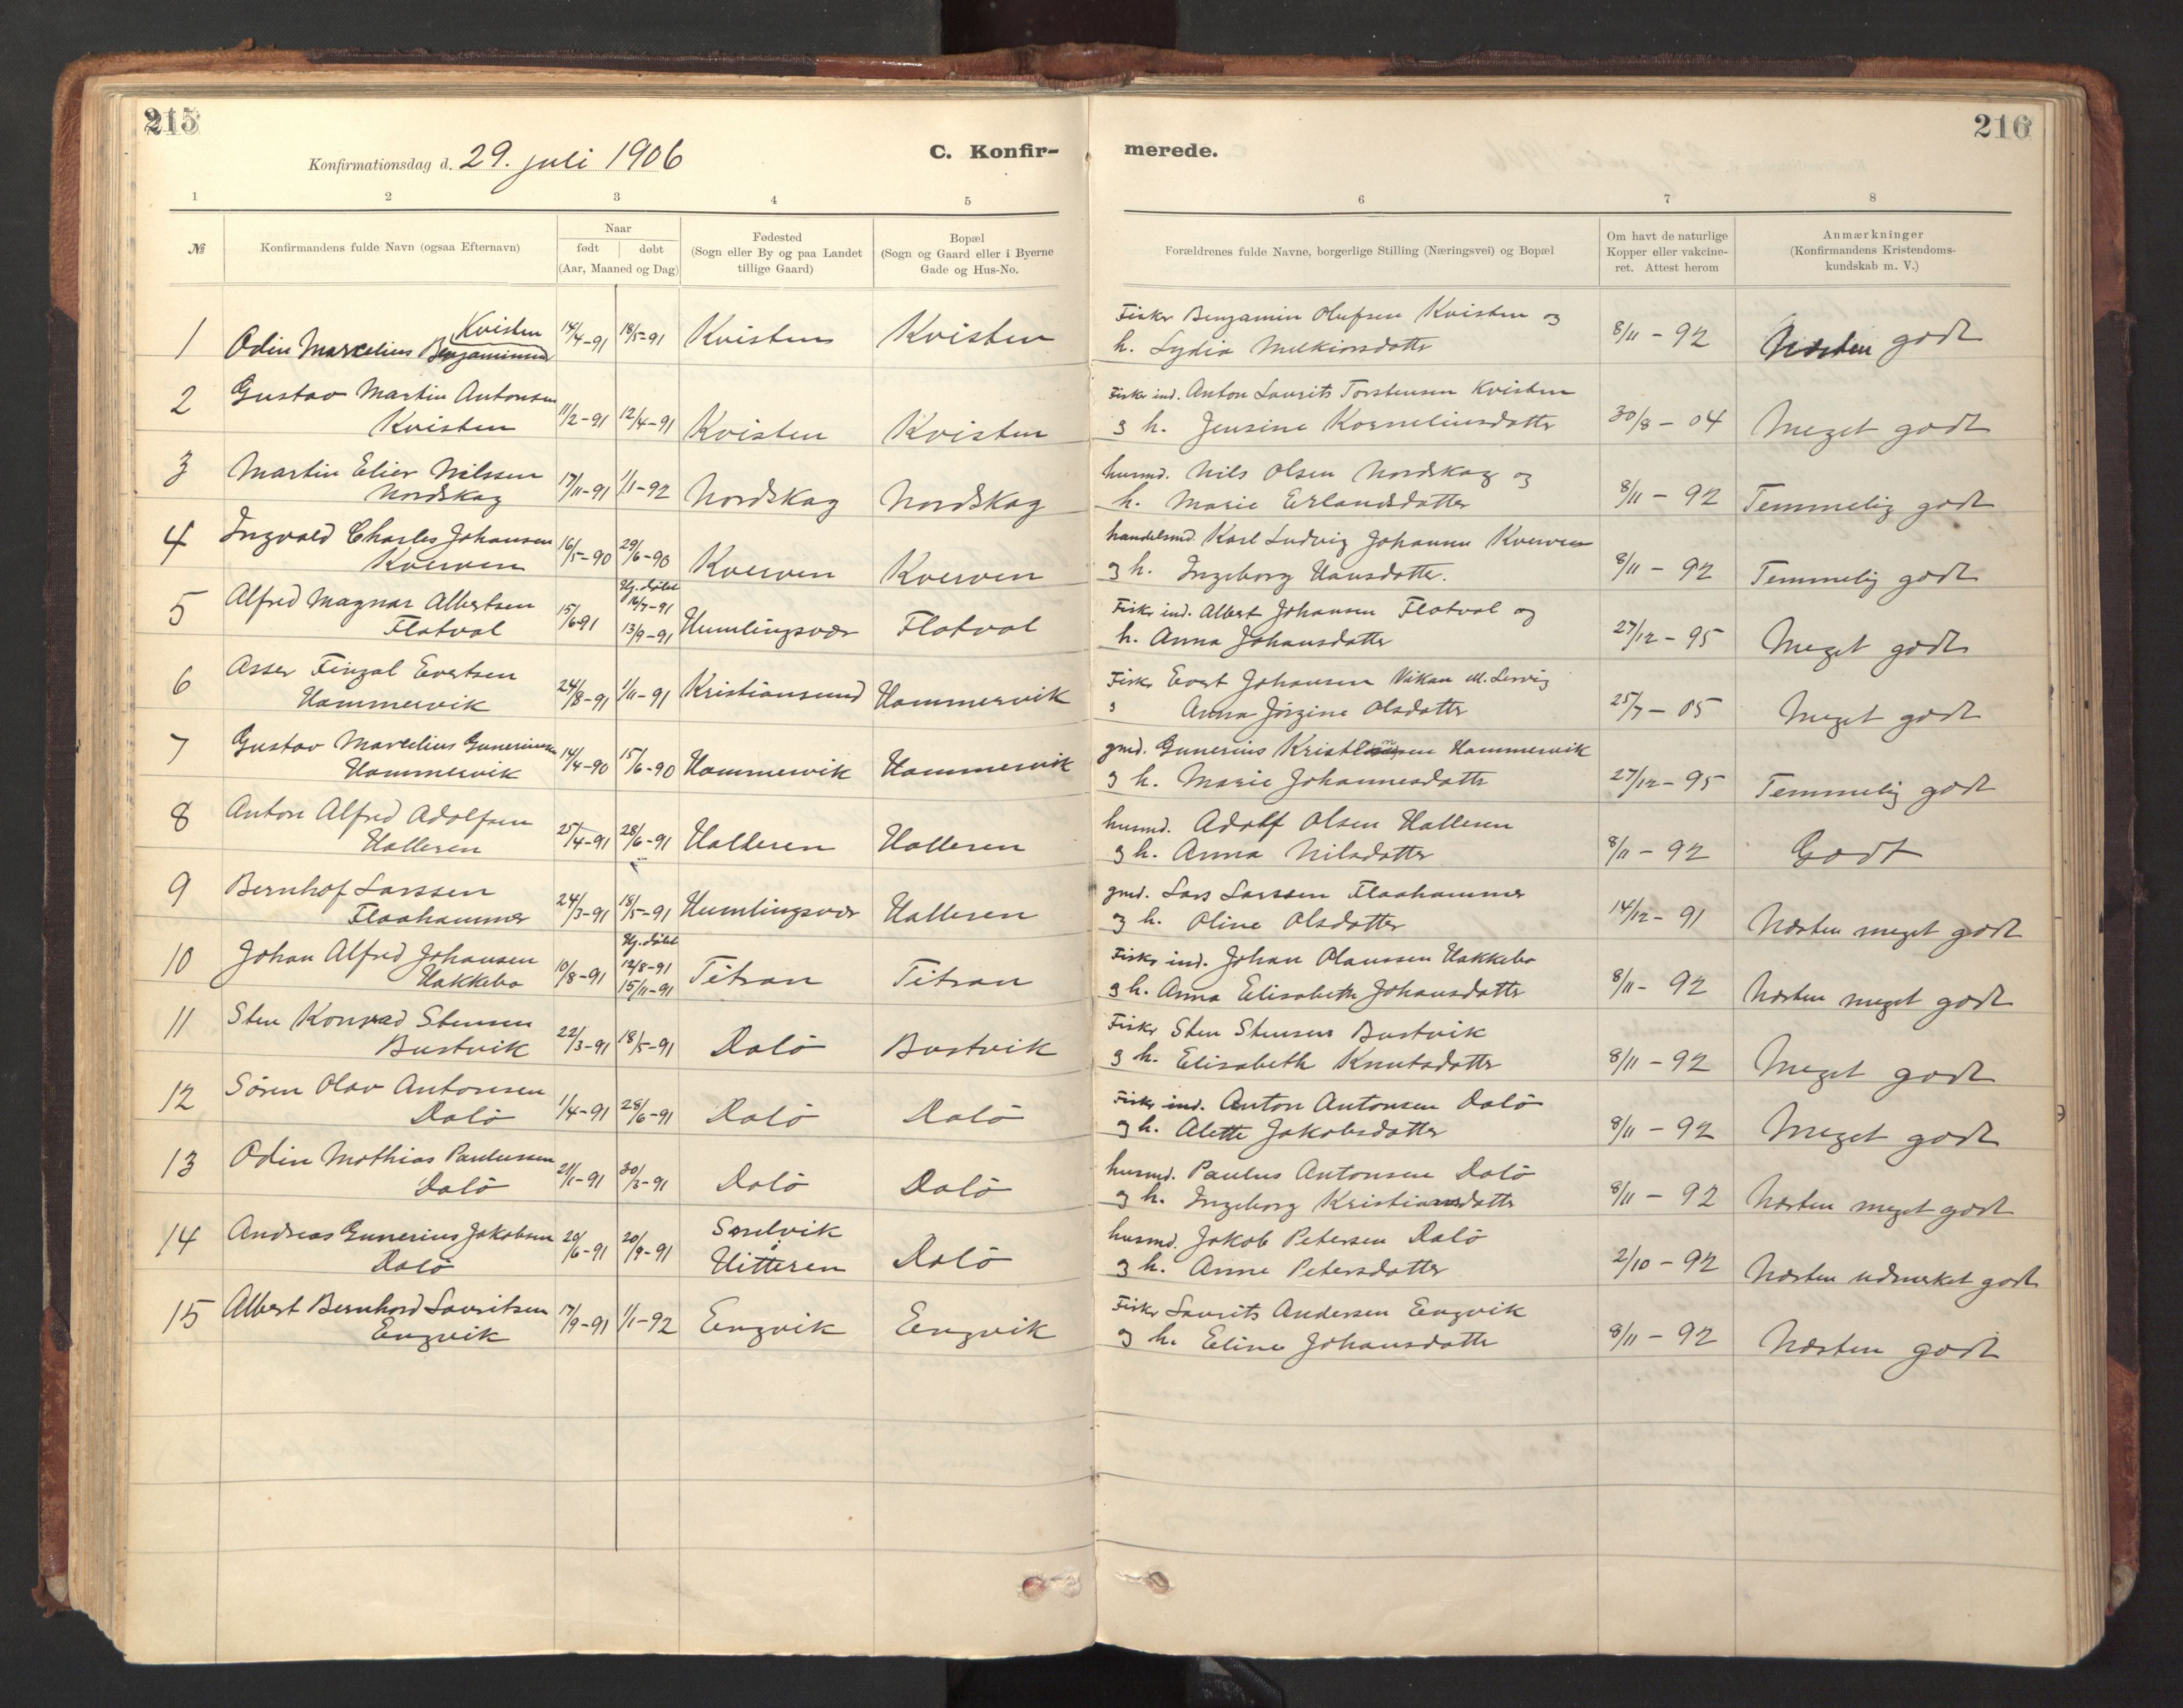 215
216
Konfirmationsdag d. 29. juli 1906
C. Konfir-
merede.
1 2 3 4 5 6 7 8
№
Konfirmandens fulde Navn (ogsaa Efternavn)
Naar
født døbt
(Aar, Maaned og Dag)
Fødested
(Sogn eller By og paa Landet
tillige Gaard)
Bopæl
(Sogn og Gaard eller i Byerne
Gade og Hus-No.
Forældrenes fulde Navne, borgerlige Stilling (Næringsvei) og Bopæl
Om havt de naturlige
Kopper eller vakcine-
ret. Attest herom
Anmærkninger
(Konfirmandens Kristendoms-
kundskab m. V.)
Kvisten
1 Odin Marcelius Benjaminsen 14/4-91 18/5-91 Kvisten Kvisten
Fisker Benjamin Olufsen Kvisten og
h. Lydia Melkiorsdatter 8/11 - 92 Næsten godt
2 Gustav Martin Antonsen
Kvisten 11/2-91 12/4-91 Kvisten Kvisten
Fisker ind. Anton Laurits Torstensen Kvisten
og h. Jensine Korneliusdatter 30/8 - 04 Meget godt
3 Martin Elier Nilssen
Nordskag 17/11-91 1/1-92 Nordskag Nordskag
husmd. Nils Olsen Nordskag og
h. Marie Erlandsdatter 8/11 - 92 Temmelig godt
4 Ingvald Charles Johansen
Kverven 16/5-90 29/6-90 Kverven Kverven
handelsmd. Karl Ludvig Johansen Kverven
og h. Ingeborg Hansdatter. 8/11 - 92 Temmelig godt
5 Alfred Magnar Albertsen
Flatval 15/6-91 Hj. døbt
16/7-91
13/9-91 Humlingsvær Flatval
Fisker ind. Albert Johansen Flatval og
h. Anna Johansdatter 27/12 - 95 Meget godt
6 Asser Fingal Evertsen
Hammervik 24/8-91 1/11-91 Kristiansund Hammervik
Fisker Evert Johansen Vikan
og Anna Jørgine Olsdatter 25/7 - 05 Meget godt
7 Gustav Marcelius Guneriussen
Hammervik 14/4-90 15/6-90 Hammervik Hammervik
gmd. Gunerius Hammervik
og h. Marie Johannesdatter 27/12 - 95 Temmelig godt
8 Anton Alfred Adolfsen
Halleren 25/4-91 28/6-91 Halleren Halleren
husmd. Adolf Olsen Halleren
og h. Anna Nilsdatter 8/11 - 92 Godt
9 Bernhof Larssen
Flaahammer 24/3-91 18/5-91 Humlingsvær Halleren
gmd. Lars Larssen Flaahammer
og h. Oline Olsdatter 14/12 - 91 Næsten meget godt
10 Johan Alfred Johansen
Hakkebo 10/8-91 Hj. døbt
12/8-91
15/11-91 Titran Titran
Fisker ind. Johan Olaussen Hakkebo
og h. Anna Elisabeth Johansdatter 8/11 - 92 Næsten meget godt
11 Sten Konrad Stensen
Bustvik 22/3-91 18/5-91 Dalö Bustvik
Fisker Sten Stensen Bustvik
og h. Elisabeth Knutsdatter 8/11 - 92 Meget godt
12 Sören Olav Antonsen
Dalö 1/4-91 28/6-91 Dalö Dalö
Fisker ind. Anton Antonsen Dalö
og h. Alette Jakobsdatter 8/11 - 92 Meget godt
13 Odin Mathias Paulussen
Dalö 21/1-91 30/3-91 Dalö Dalö
husmd. Paulus Antonsen Dalö
og h. Ingeborg Kristiansdatter 8/11 - 92 Næsten meget godt
14 Andreas Gunerius Jakobsen
Dalö 20/6-91 20/9-91 Sandvik
Hitteren Dalö
husmd. Jakob Petersen Dalö
og h. Anne Petersdatter 2/10 - 92 Næsten udmerket godt
15 Albert Bernhard Lauritsen
Engvik 17/9-91 1/1-92 Engvik Engvik
Fisker Laurits Andersen Engvik
og h. Eline Johansdatter 8/11 - 92 Næsten godt